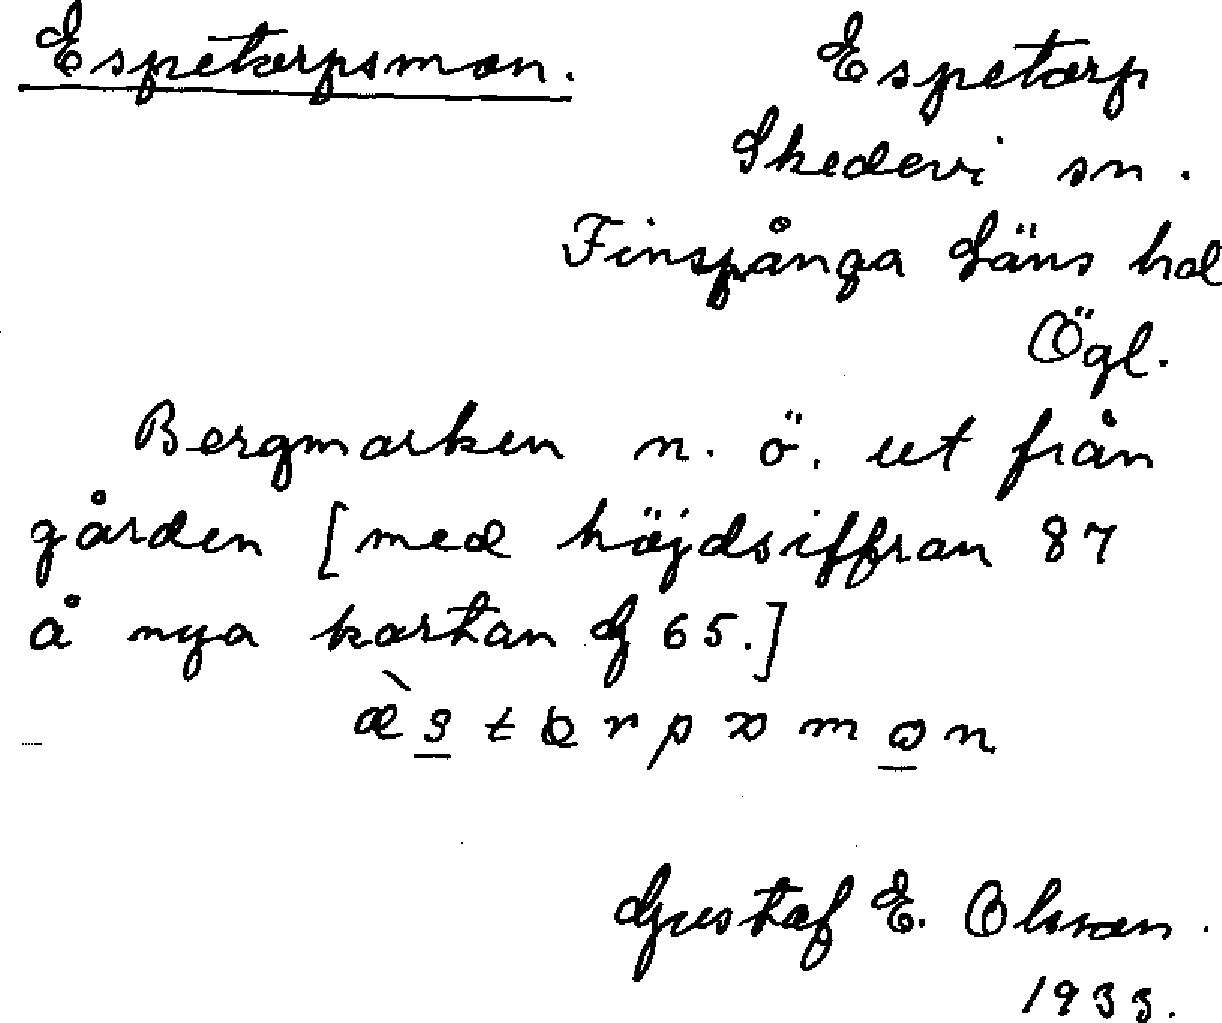 Espetorpsmon. Espetorp
Skedevi sn.
Finspånga Läns hd
Ögl.
Bergmarken n. ö. ut från
gården [med höjdsiffran 87
å nya kartan G 65.]
Gustaf E. Olsson.
1933.